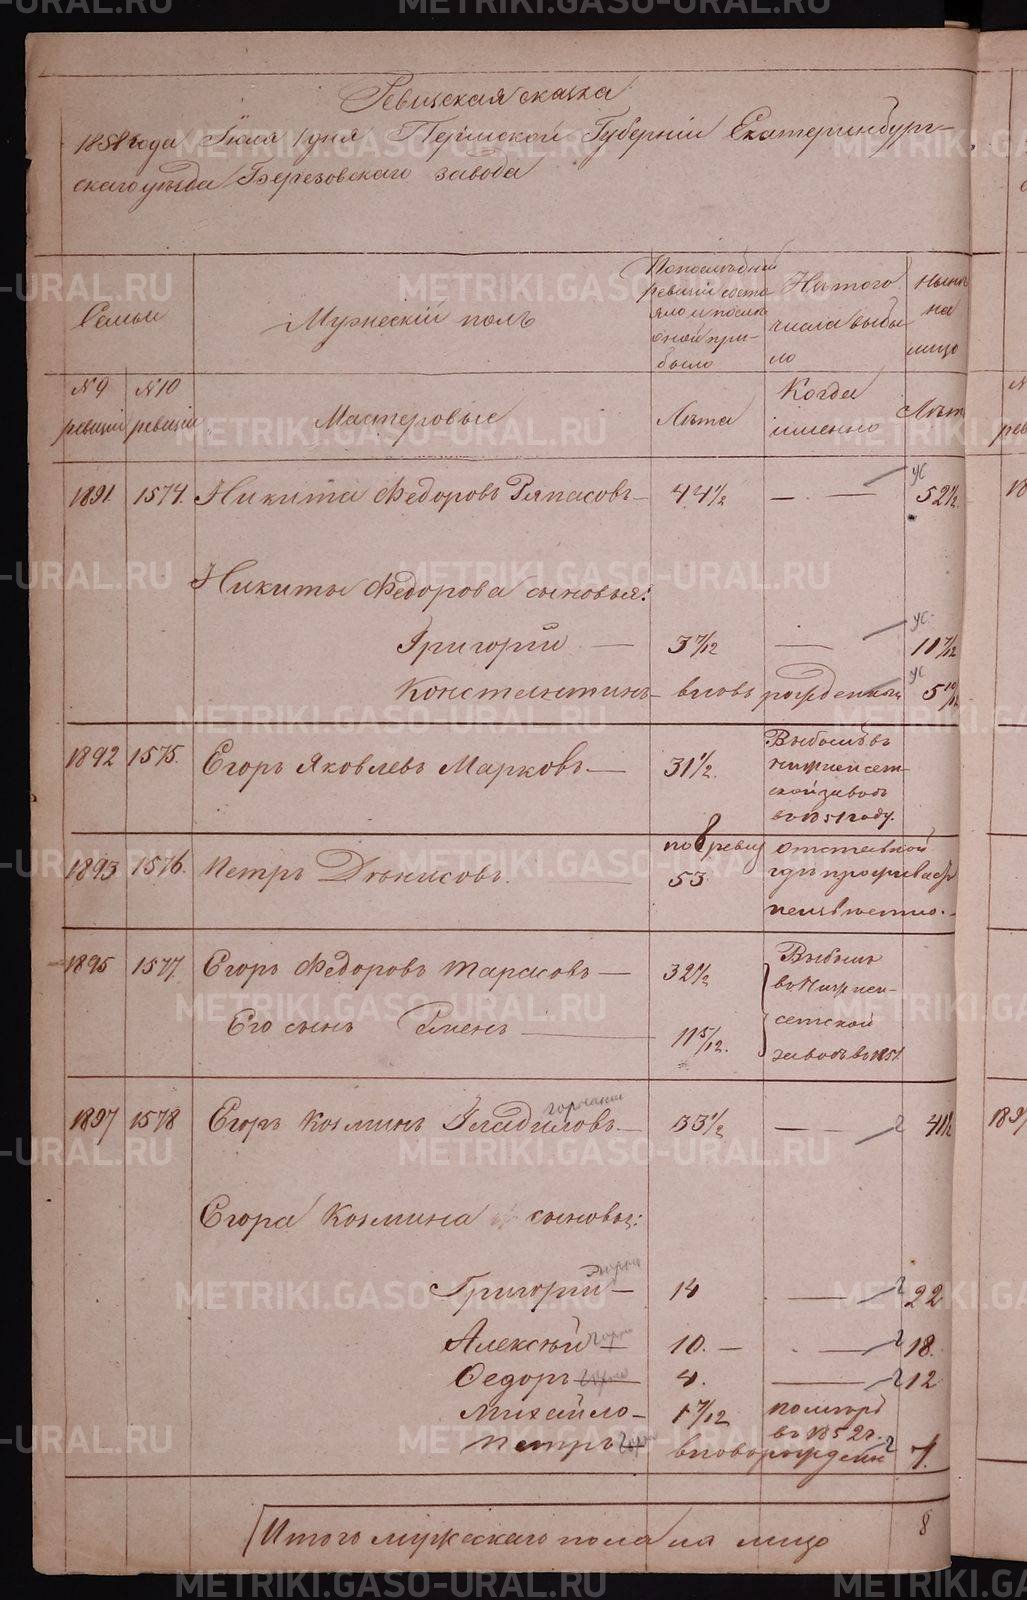 Ревизская сказка
1858 года Июля 1 дня Пермской Губернии Екатеринбург-
скаго уѣзда Березовскаго завода
Семьи
Мужескій полъ
По послѣдней ревизіи состояло и послѣ оной прибыло
Изъ того числа выбыло
Нынѣ на лицо
№ 9 ревизіи
№ 10 ревизіи
Мастеровые
Лѣта
Когда именно
Лѣта
1891. 1574. Никита Федоровъ — 44 1/2 — — 52 1/2
Никиты Федорова сыновья:
Григорій — 3 7/12 — 11 7/12
Константинъ — вновь рожденный 5 10/12
1892 1575. Егоръ Яковлевъ Марковъ — 31 1/2.
Выбылъ въ
Нижнейсет-
ской заводъ
въ 1851 году.
1893 1576. Петръ Денисовъ. — по 8 ревиз 53
отставной
гдѣ проживаетъ
неизвѣстно.
1895 1577 Егоръ Федоровъ Тарасовъ — 32 1/2
Его сынъ Семенъ — 11 5/12.
Выбылъ
въ Нижней-
сетской
заводъ въ 1851
1897 1578 Егоръ Козминъ Гладиловъ — 33 1/2 — — 41 1/2
Егора Козмина сыновья:
Григорій — 14 — 22
Алексѣй — 10. — — 18.
Федоръ — 4. — 12
Михайло — 1 7/12 померъ
въ 1852 г.
Петръ вновь рожден 7.
Итого мужескаго пола на лицо 8
METRIKI.GASO-URAL.RU